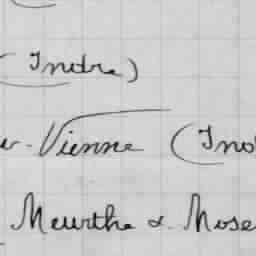 (Indre)
Vienne (Ind
Meurthe & Mose